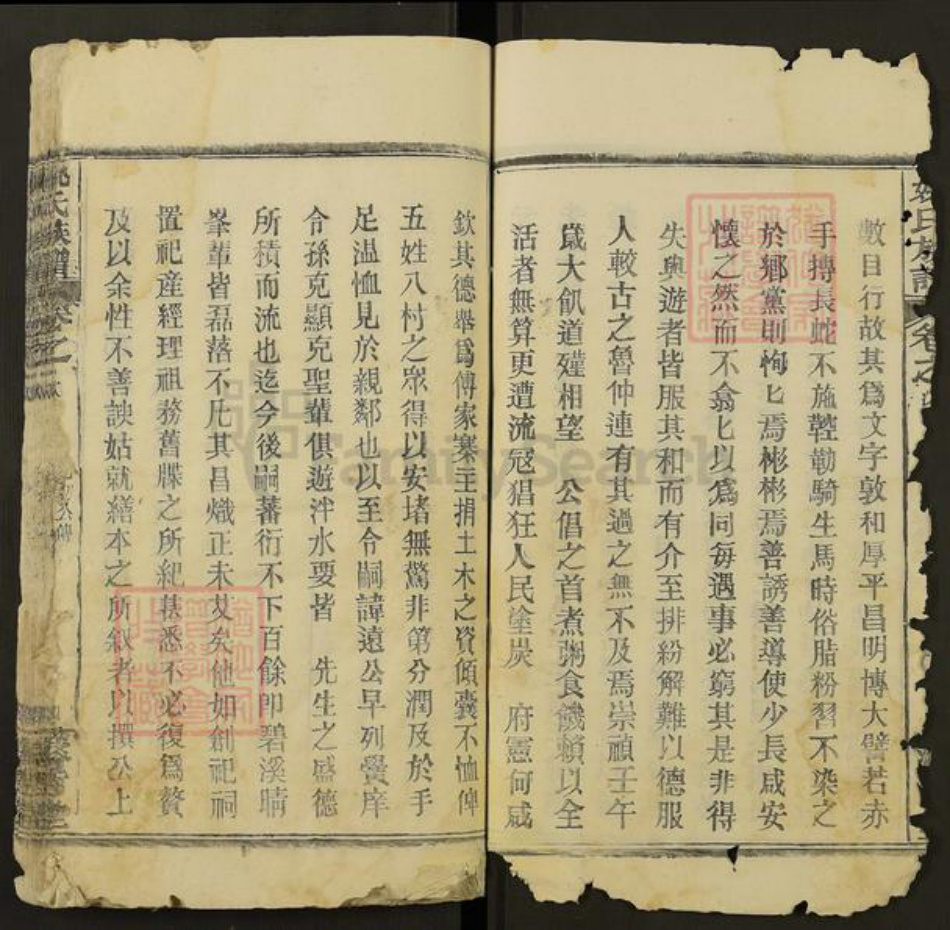 數目行故其爲文字敦和厚平昌明博大譬若赤
手搏長蛇不施鞚勒騎生馬時俗脂粉習不染之
於鄉黨則恂匕焉彬彬焉善誘善導使少長咸安
懷之然而不翕匕以爲同每遇事必窮其是非得
失與遊者皆服其和而有介至排紛解難以德服
人較古之魯仲連有其過之無不及焉崇禎壬午
歲大飢道殣相望 公倡之首煮粥食饑賴以全
活者無算更遭流冦猖狂人民塗炭 府憲何咸
欽其德舉爲傅家寨主捐土木之資傾囊不恤俾
五姓八村之眾得以安堵無驚非第分潤及於手
足温恤見於親鄰也以至令嗣諱遠公早列黌庠
令孫克顯克聖輩俱遊泮水要皆 先生之盛德
所積而流也迄今後嗣蕃衍不下百餘即碧溪晴
峯輩皆磊落不凡其昌熾正未艾矣他如創祀祠
置祀産經理祖務舊牒之所紀甚悉不必復爲贅
及以余性不善諛姑就繕本之所叙者以撰公上
氏族譜
FamilySearch